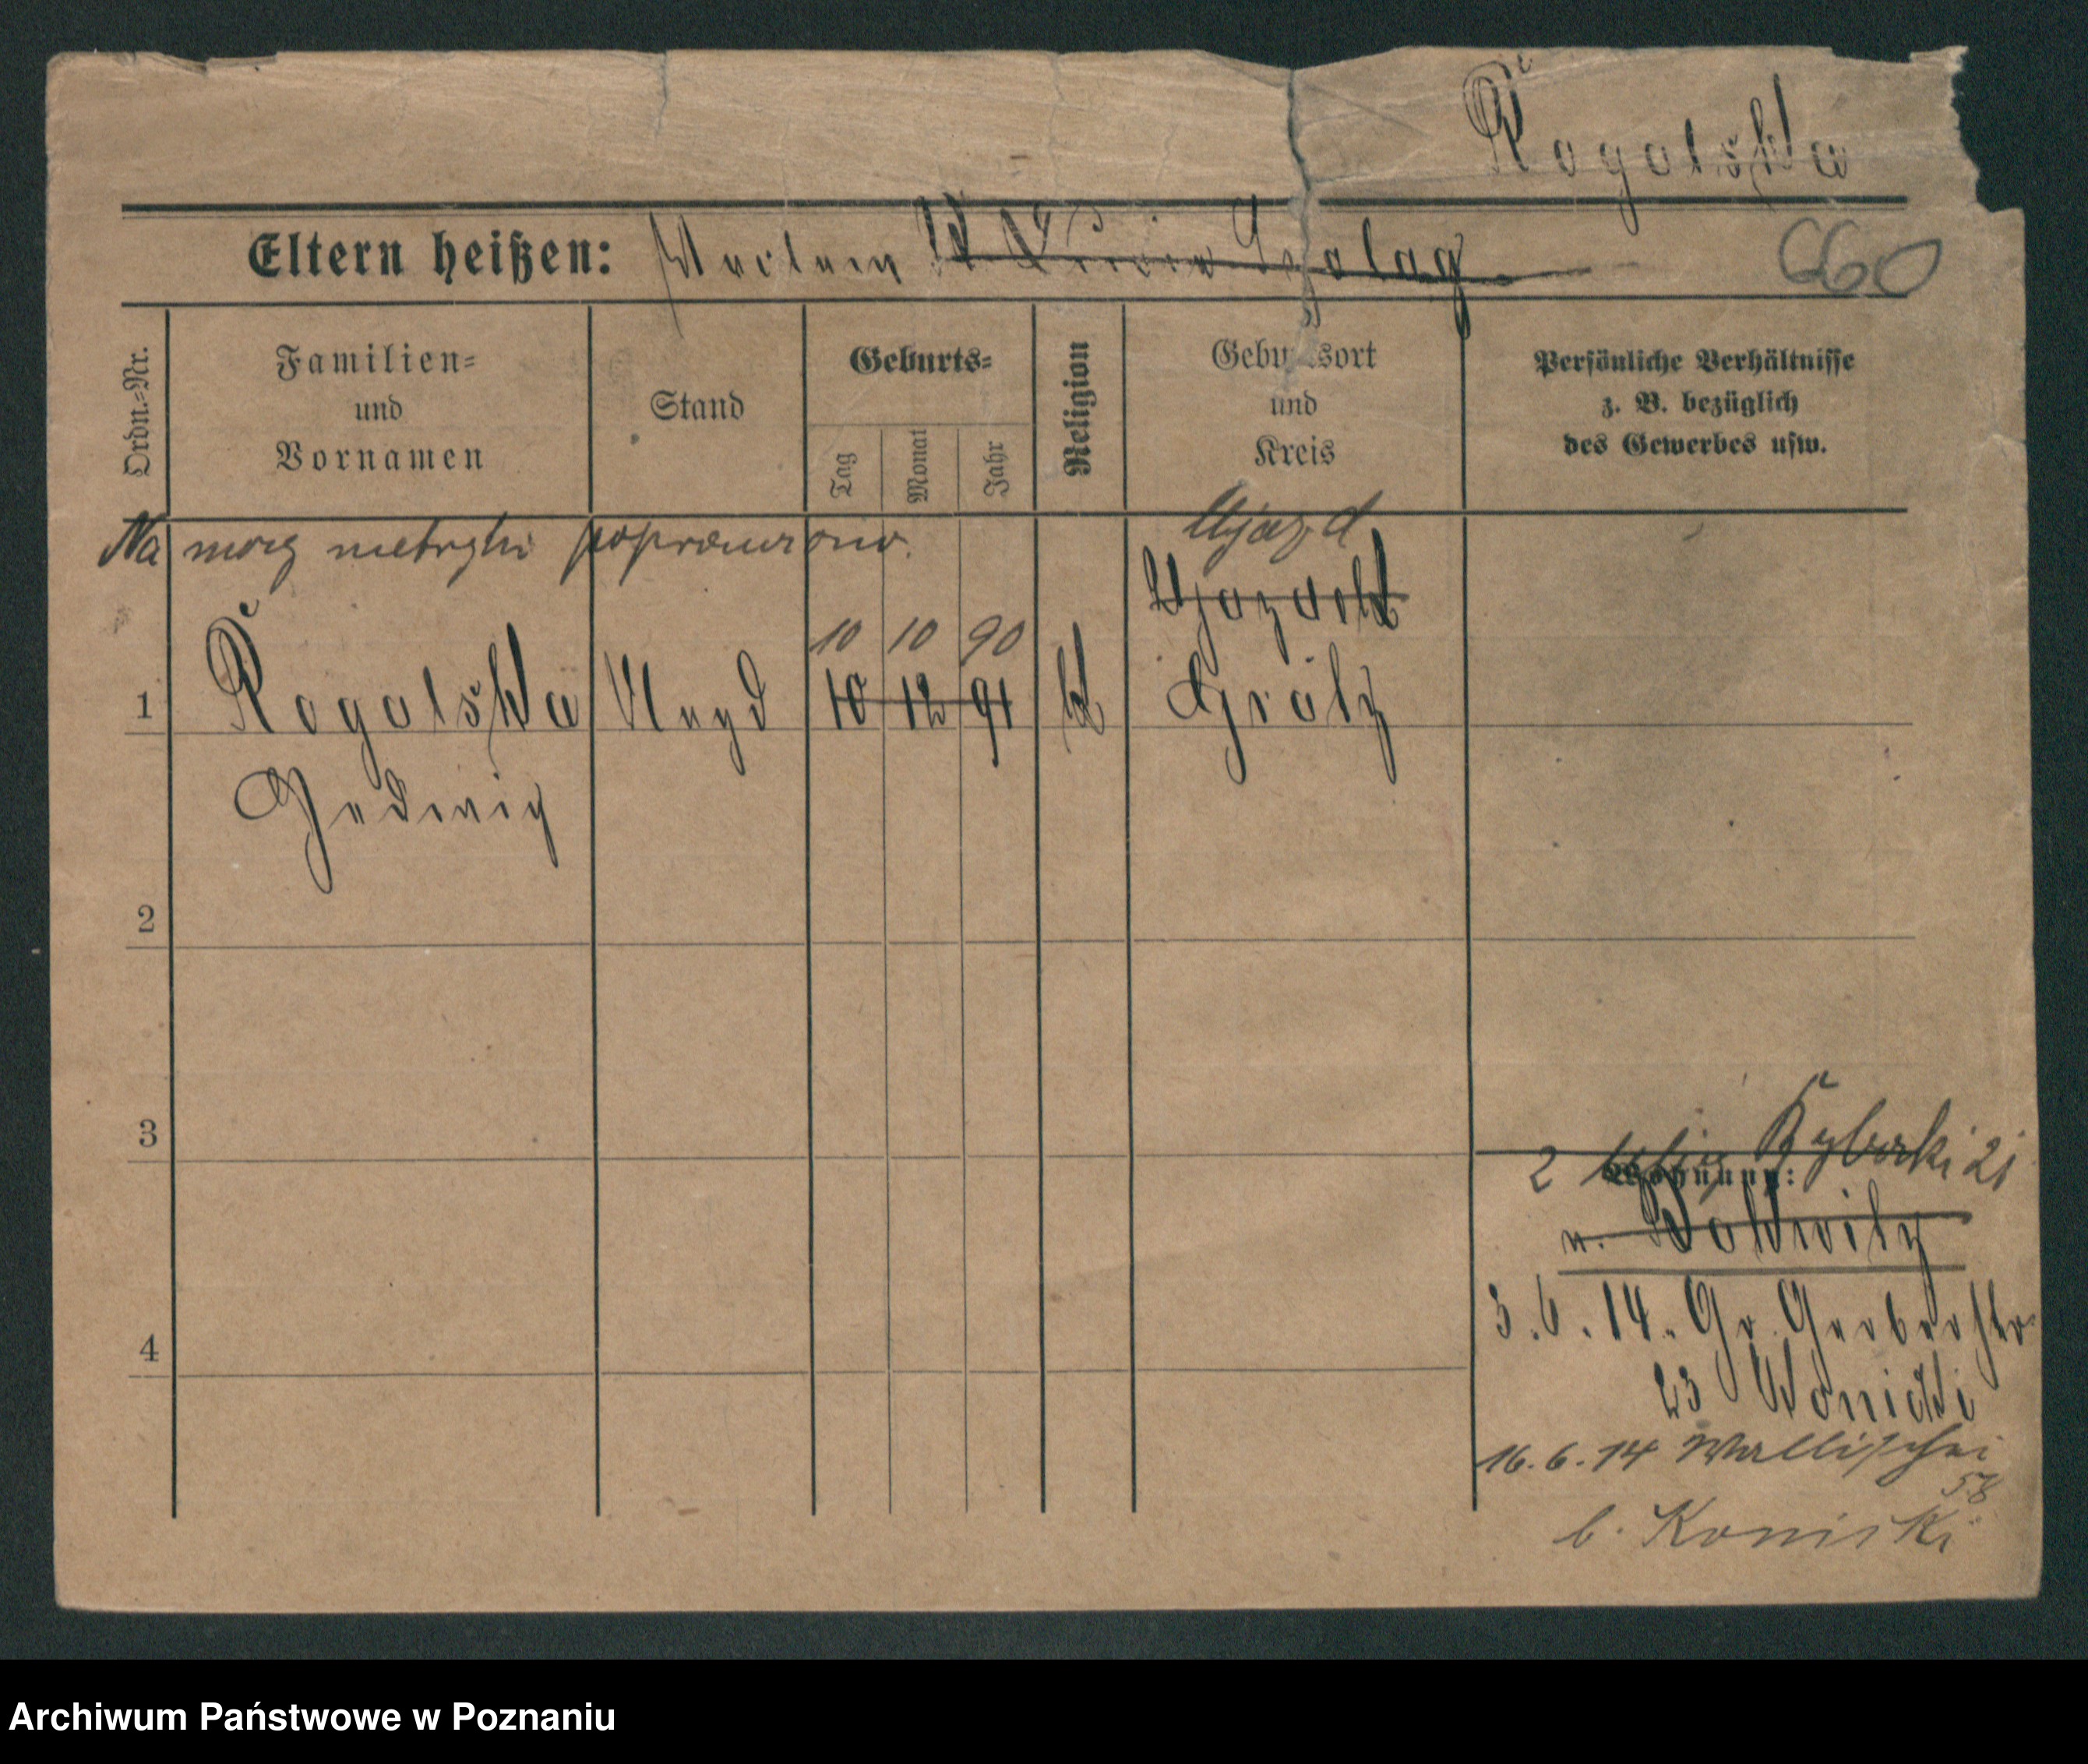 Rogalska
Eltern heißen:
660
Ordn.-Nr.
Familien-
und
Vornamen
Stand
Geburts-
Tag
Monat
Jahr
Religion
Geburtsort
und
Kreis
Persönliche Verhältnisse
z. B. bezüglich
des Gewerbes usw.
Na mocy metryki poprawiono.
Ujazd
10 10 90
1 Rogalska Magd 10 12 91 k Grätz
Hedwig
2
3
2 Rybarki 21
Wohnung:
3.6.14. Gr. Gerberstr.
4
23
16.6.14 Wallischei
58
b. Koniski
Archiwum Państwowe w Poznaniu